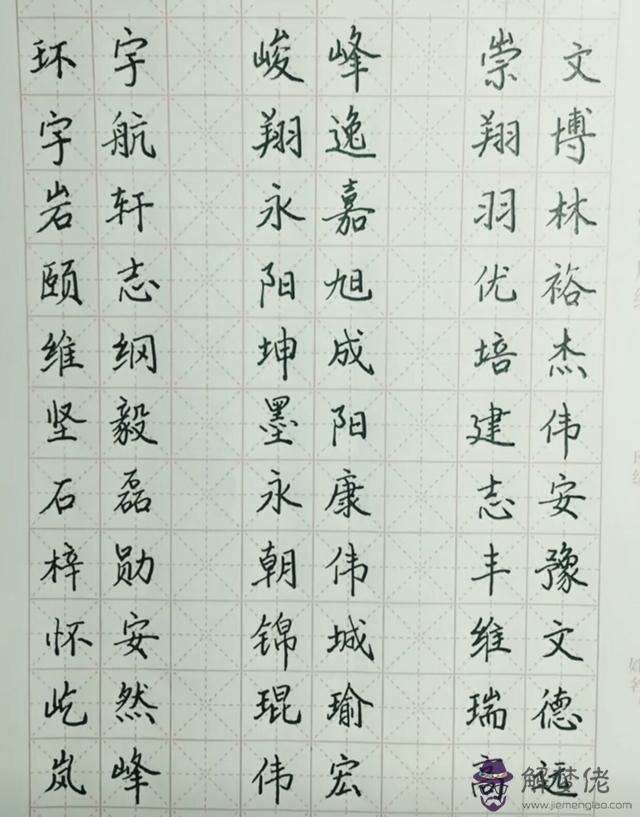 环宇 峻峰 崇文
宇航 翔逸 翔博
岩轩 永嘉 羽林
颐志 阳旭 优裕
维纲 坤成 培杰
坚毅 墨阳 建伟
石磊 永康 志安
梓勋 朝伟 丰豫
怀安 锦城 维文
屹然 琨瑜 瑞德
岚峰 伟宏 高远
解梦佬
www.jiemenglao.com